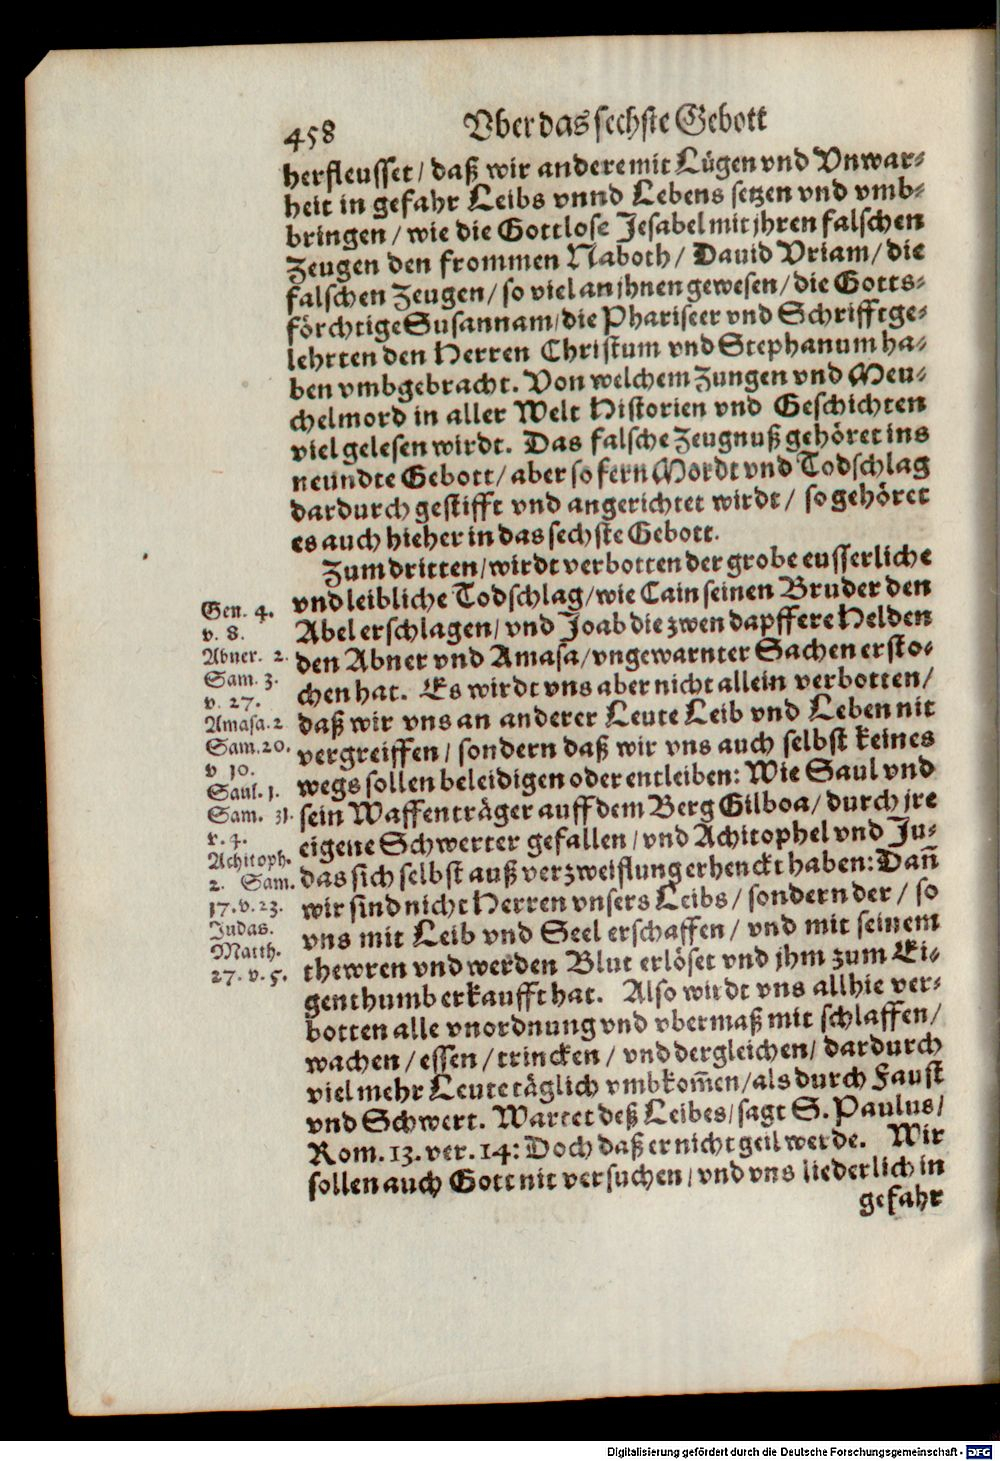 458 Vber das sechste Gebott
herfleusset / daß wir andere mit Lügen vnd Vnwar⸗
heit in gefahr Leibs vnnd Lebens setzen vnd vmb⸗
bringen / wie die Gottlose Jesabel mit jhren falschen
Zeugen den frommen Naboth / Dauid Vriam / die
falschen Zeugen / so viel an jhnen gewesen / die Gotts⸗
förchtige Susannam / die Phariseer vnd Schrifftge⸗
lehrten den Herren Christum vnd Stephanum ha⸗
ben vmbgebracht. Von welchem Zungen vnd Meu⸗
chelmord in aller Welt Historien vnd Geschichten
viel gelesen wirdt. Das falsche Zeugnuß gehöret ins
neundte Gebott / aber so fern Mordt vnd Todschlag
dardurch gestifft vnd angerichtet wirdt / so gehöret
es auch hieher in das sechste Gebott.
Zum dritten / wirdt verbotten der grobe eusserliche
vnd leibliche Todschlag / wie Cain seinen Bruder den
Abel erschlagen / vnd Joab die zwen dapffere Helden
den Abner vnd Amasa / vngewarnter Sachen ersto⸗
chen hat. Es wirdt vns aber nicht allein verbotten /
daß wir vns an anderer Leute Leib vnd Leben nit
vergreiffen / sondern daß wir vns auch selbst keines
wegs sollen beleidigen oder entleiben: Wie Saul vnd
sein Waffenträger auff dem Berg Gilboa / durch jre
eigene Schwerter gefallen / vnd Achitophel vnd Ju⸗
das sich selbst auß verzweiflung erhenckt haben: Dañ
wir sind nicht Herren vnsers Leibs / sondern der / so
vns mit Leib vnd Seel erschaffen / vnd mit seinem
thewren vnd werden Blut erlöset vnd jhm zum Ei⸗
genthumb erkaufft hat. Also wirdt vns allhie ver⸗
botten alle vnordnung vnd vbermaß mit schlaffen /
wachen / essen / trincken / vnd dergleichen / dardurch
viel mehr Leute täglich vmbkom̃en / als durch Faust
vnd Schwert. Wartet deß Leibes / sagt S. Paulus /
Rom. 13. ver. 14: Doch daß er nicht geil werde. Wir
sollen auch Gott nit versuchen / vnd vns liederlich in
gefahr
Gen. 4.
v. 8.
Abner. 2.
Sam. 3.
v. 27.
Amasa. 2
Sam. 20.
v 10.
Saul. 1.
Sam. 31.
v. 4.
Achitoph.
2. Sam.
17. v. 23.
Judas.
Matth.
27. v. 5.
Digitalisierung gefördert durch die Deutsche Forschungsgemeinschaft - DFG